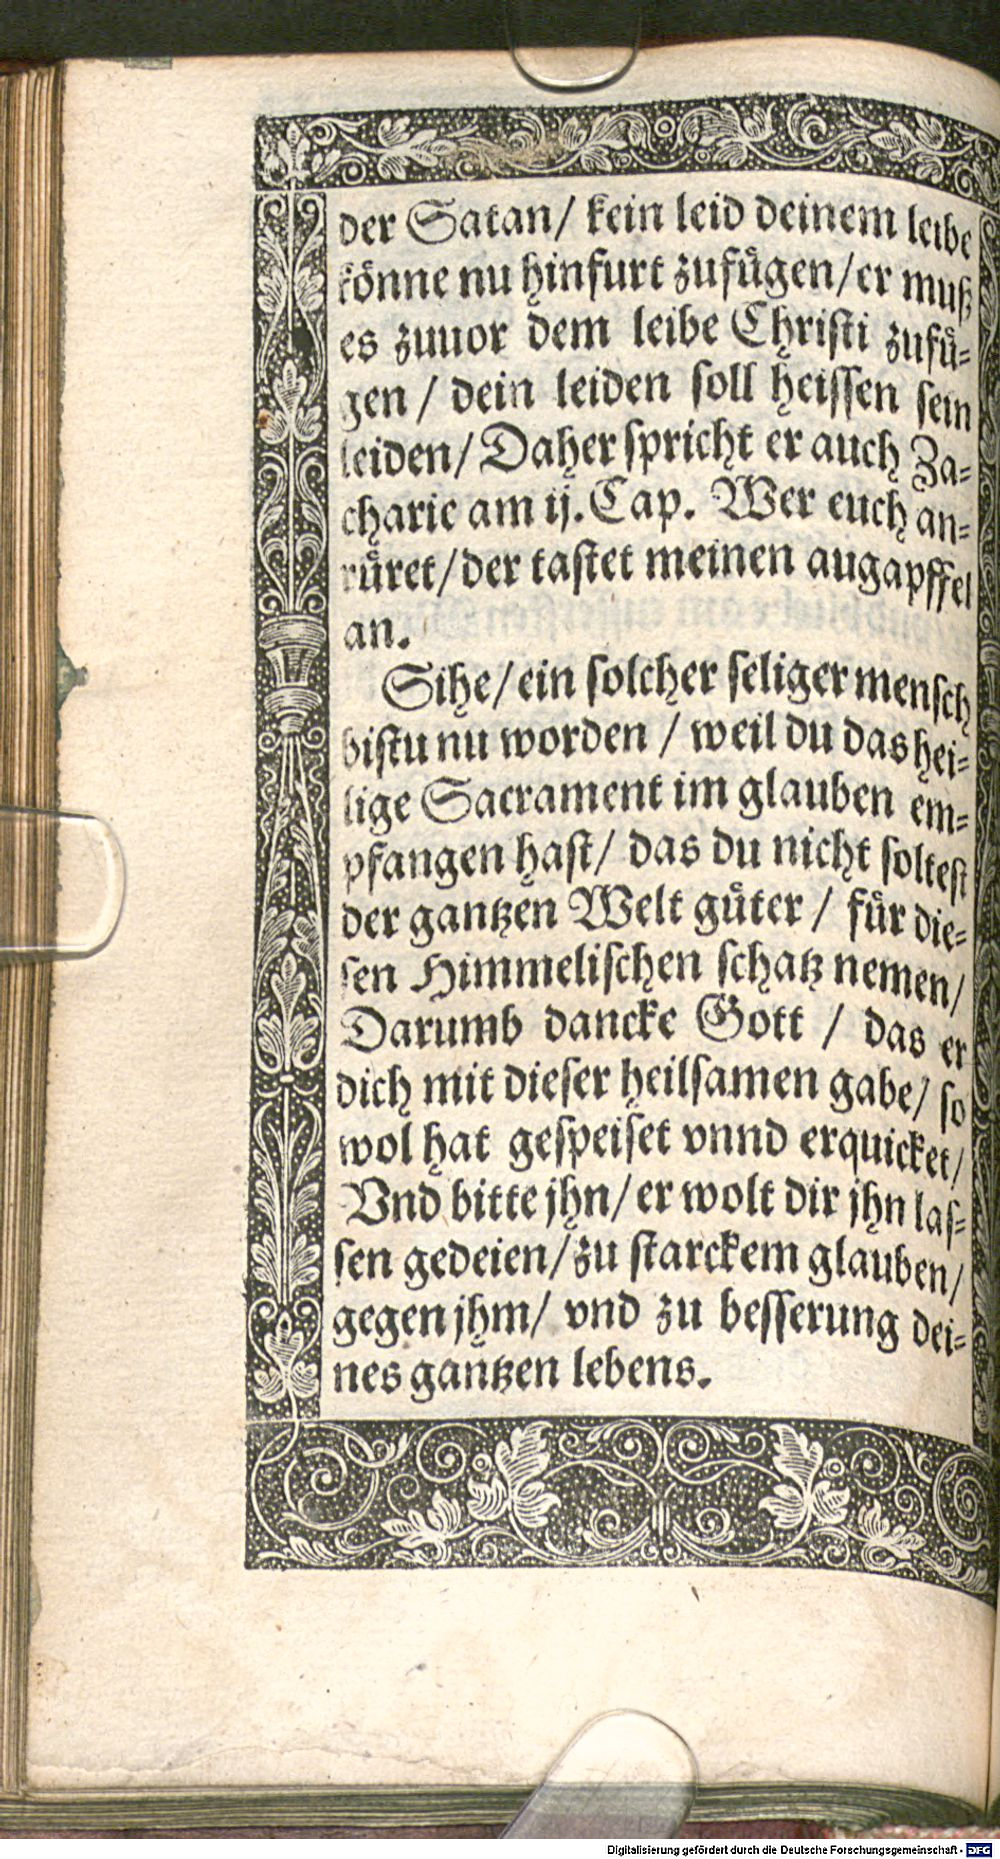 der Satan/ kein leid deinem leibe
könne nu hinfurt zufügen/ er muß
es zuuor dem leibe Christi zufü-
gen / dein leiden soll heissen sein
leiden/ Daher spricht er auch Za-
charie am ij. Cap. Wer euch an-
rüret/ der tastet meinen augapffel
an.
Sihe/ ein solcher seliger mensch
bistu nu worden / weil du das hei-
lige Sacrament im glauben em-
pfangen hast/ das du nicht soltest
der gantzen Welt güter / für die-
sen Himmelischen schatz nemen/
Darumb dancke Gott / das er
dich mit dieser heilsamen gabe/ so
wol hat gespeiset vnnd erquicket/
Vnd bitte jhn/ er wolt dir jhn las-
sen gedeien/ zu starckem glauben/
gegen jhm/ vnd zu besserung dei-
nes gantzen lebens.
Digitalisierung gefördert durch die Deutsche Forschungsgemeinschaft - DFG